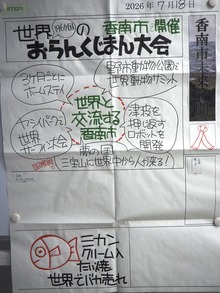 2026年7月18日
世界の香南市開催
おらんくじまん大会
香南市未来
3ケ月ごとに
ホームステイ
野市動物公園で
世界動物サミット
世界と
交流する
香南市
ヤシパークで
世界
サーフィン大会
津波を
押し返す
ロボットを
開発
夢の国
三宝山に世界中から人が来る!
ミカン
クリーム入
たい焼
世界でバカ売れ